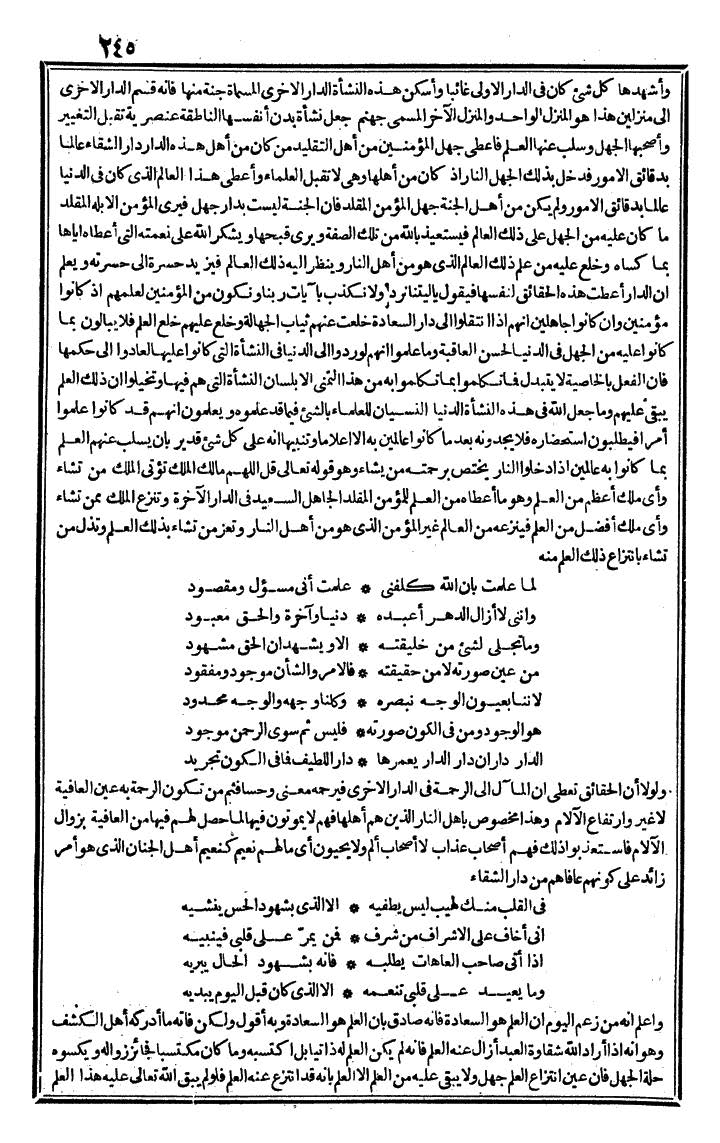 ٢٤٥
وأشهدها كل شئ كان فى الدار الاولى غائبا وأسكن هذه النشأة الدار الاخرى المسماة جنة منها فانه قسم الدار الاخرى
الى منزلين هذا هو المنزل الواحد والمنزل الآخر المسمى جهنم جعل نشأة بدن أنفسها الناطقة عنصرية تقبل التغيير
وأصحبها الجهل وسلب عنها العلم فاعطى جهل المؤمنين من أهل التقليد من كان من أهل هذه الدار دار الشقاء عالما
بدقائق الامور فدخل بذلك الجهل النار اذ كان من أهلها وهى لا تقبل العلماء وأعطى هذا العالم الذى كان فى الدنيا
عالما بدقائق الامور ولم يكن من أهل الجنة جهل المؤمن المقلد فان الجنة ليست بدار جهل فيرى المؤمن الابله المقلد
ما كان عليه من الجهل على ذلك العالم فيستعيذ بالله من تلك الصفة ويرى قبحها ويشكر الله على نعمته التى أعطاه اياها
بما كساه وخلع عليه من علم ذلك العالم الذى هو من أهل النار وينظر اليه ذلك العالم فيزيد حسرة الى حسرته ويعلم
ان الدار أعطت هذه الحقائق لنفسها فيقول ياليتنا نرد ولا نكذب بآيات ربنا ونكون من المؤمنين لعلمهم اذ كانوا
مؤمنين وان كانوا جاهلين انهم اذا انتقلوا الى دار السعادة خلعت عنهم ثياب الجهالة وخلع عليهم خلع العلم فلا يبالون بما
كانوا عليه من الجهل فى الدنيا لحسن العاقبة وما علموا انهم لو ردوا الى الدنيا فى النشأة التى كانوا عليها لعادوا الى حكمها
فان الفعل بالخاصية لا يتبدل فما تكلموا بما تكلموا به من هذا التمنى الا بلسان النشأة التى هم فيها وتخيلوا ان ذلك العلم
يبقى عليهم وما جعل الله فى هذه النشأة الدنيا النسيان للعلماء بالشئ فيما قد علموه ويعلمون انهم قد كانوا علموا
أمرا فيطلبون استحضاره فلا يجدونه بعد ما كانوا عالمين به الا اعلاما وتنبيها انه على كل شئ قدير بان يسلب عنهم العلم
بما كانوا به عالمين اذا دخلوا النار يختص برحمته من يشاء وهو قوله تعالى قل اللهم مالك الملك تؤتى الملك من تشاء
وأى ملك أعظم من العلم وهو ما أعطاه من العلم للمؤمن المقلد الجاهل السعيد فى الدار الآخرة وتنزع الملك ممن تشاء
وأى ملك أفضل من العلم فينزعه من العالم غير المؤمن الذى هو من أهل النار وتعز من تشاء بذلك العلم وتذل من
تشاء بانتزاع ذلك العلم منه
لما علمت بان الله كلفنى * علمت أنى مسؤل ومقصود
واننى لا أزال الدهر أعبده * دنيا وآخرة والحق معبود
وما تجلى لشئ من خليقته * الا ويشهد ان الحق مشهود
من عين صورته لا من حقيقته * فالامر والشأن موجود ومفقود
لاننا بعيون الوجه نبصره * وكلنا وجهه والوجه محدود
هو الوجود ومن فى الكون صورته * فليس ثم سوى الرحمن موجود
الدار داران دار الدار يعمرها * دار اللطيف فما فى الكون تجريد
ولولا أن الحقائق تعطى ان المآل الى الرحمة فى الدار الاخرى فيرحمه معنى وحسا فثم من تكون الرحمة به عين العافية
لا غير وارتفاع الآلام وهذا مخصوص باهل النار الذين هم أهلها فهم لا يموتون فيها لما حصل لهم فيها من العافية بزوال
الآلام فاستعذبوا ذلك فهم أصحاب عذاب لا أصحاب ألم ولا يحيون أى ما لهم نعيم كنعيم أهل الجنان الذى هو أمر
زائد على كونهم عافاهم من دار الشقاء
فى القلب منك لهيب ليس يطفيه * الا الذى بشهود الحس ينشيه
انى أخاف على الاشراف من شرف * فمن يمرّ على قلبى فينبيه
اذا أتى صاحب العاهات يطلبه * فانه بشهود الحال يبريه
وما يعيد على قلبى تنعمه * الا الذى كان قبل اليوم يبديه
واعلم انه من زعم اليوم ان العلم هو السعادة فانه صادق بان العلم هو السعادة وبه أقول ولكن فاته ما أدركه أهل الكشف
وهو انه اذا أراد الله شقاوة العبد أزال عنه العلم فانه لم يكن العلم له ذاتيا بل اكتسبه وما كان مكتسبا فجائز زواله ويكسوه
حلة الجهل فان عين انتزاع العلم جهل ولا يبقى عليه من العلم الا العلم بانه قد انتزع عنه العلم فلو لم يبق الله تعالى عليه هذا العلم